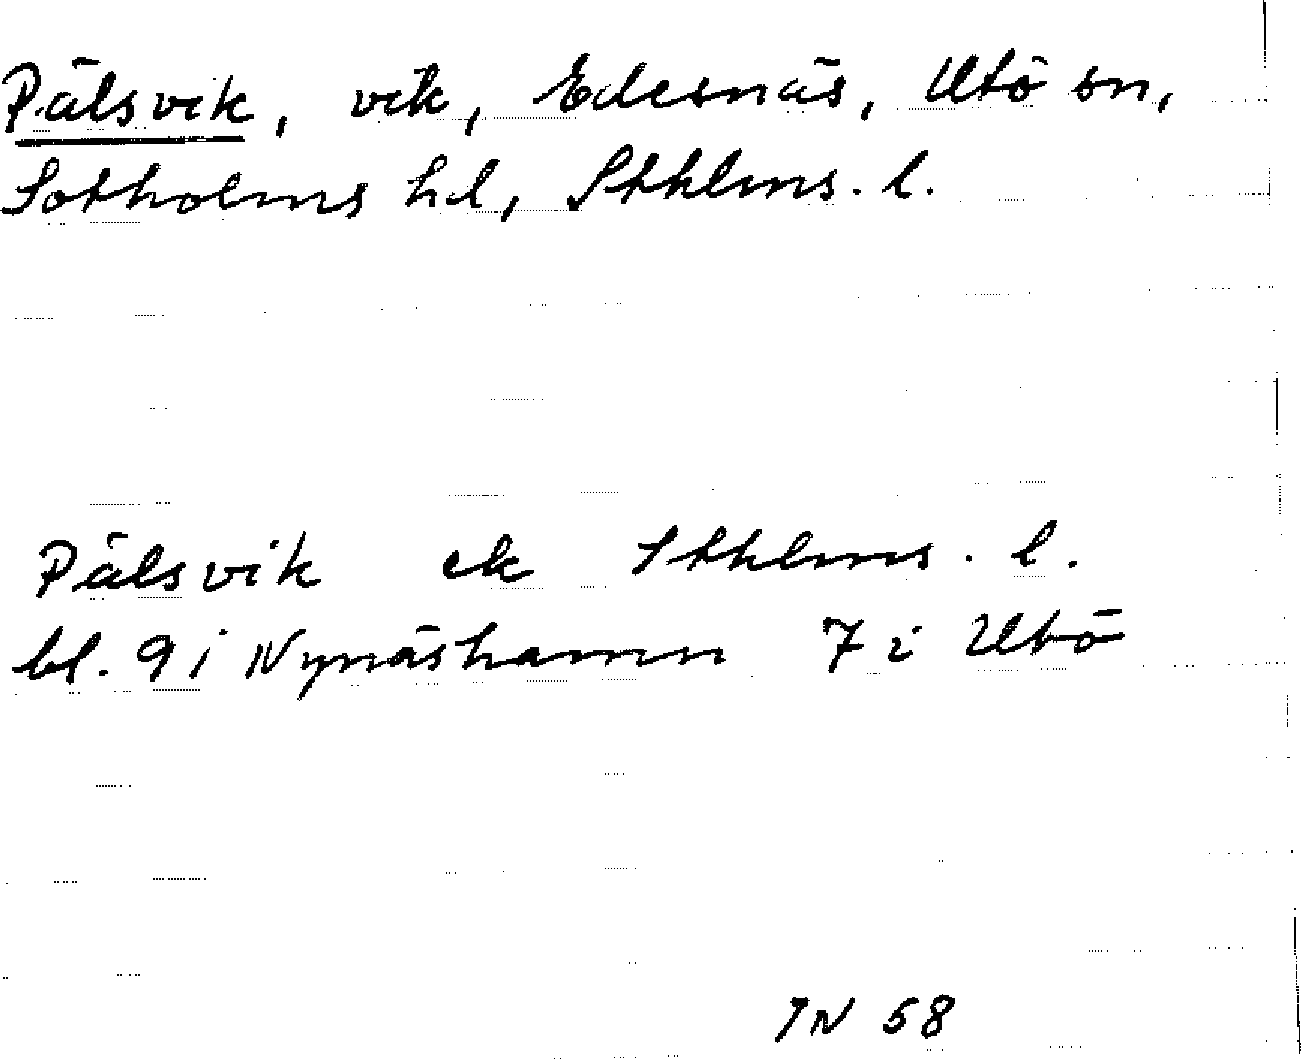 Pälsvik, vik, Edesnäs, Utö sn,
Sotholms hd, Sthlms. l.
Pälsvik ek Sthlms. l.
bl. 9 i Nynäshamn 7 i Utö
IN 58